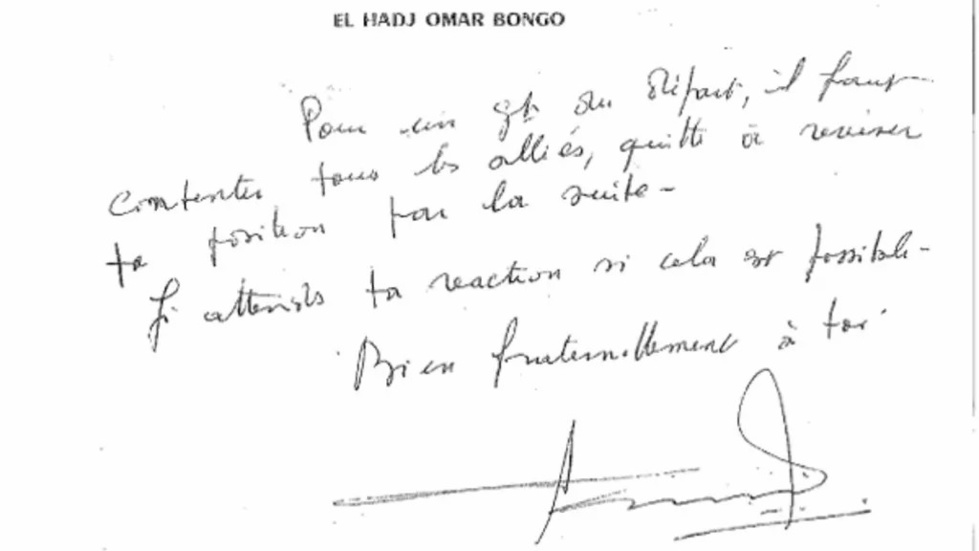 EL HADJ OMAR BONGO
Pour un gt du départ, il faut
contenter tous les alliés, quitte à reviser
ta position par la suite -
J'attends ta reaction si cela est possible -
Bien fraternellement à toi